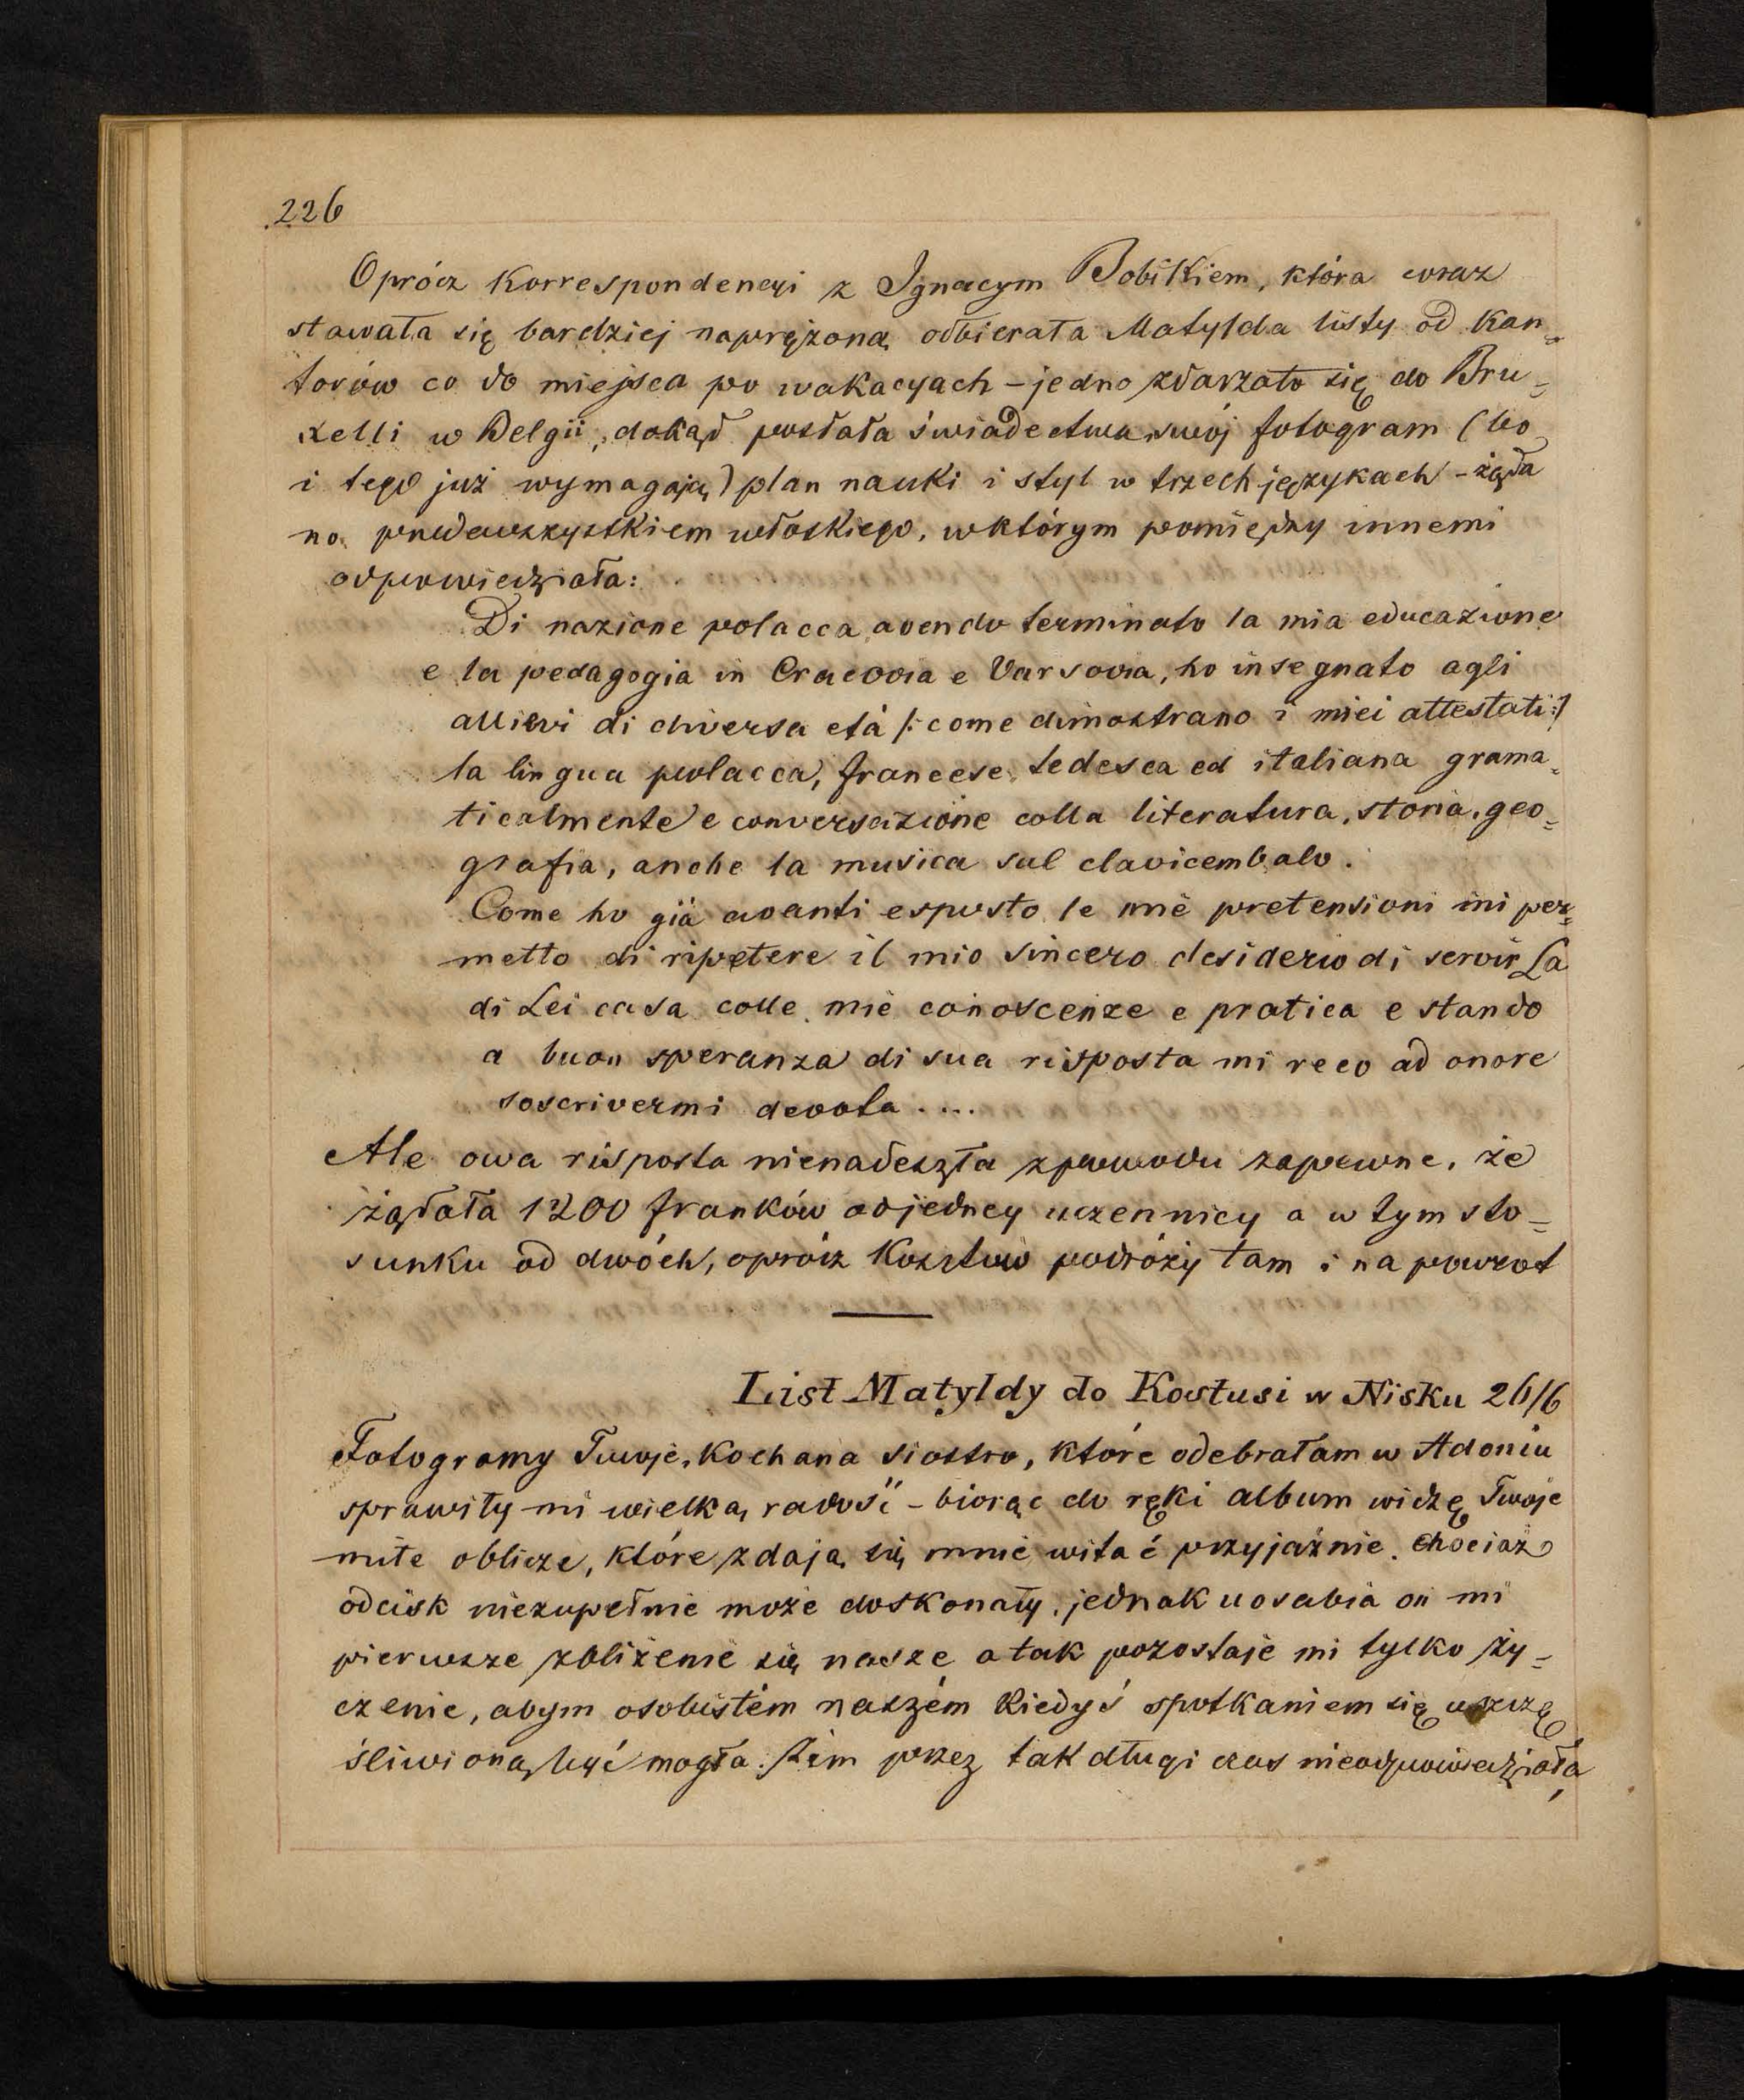 226
Oprócz Korrespondencyi z Ignacym Bobikiem, która coraz
stawała się bardziej naprężoną odbierała Matylda listy od Kan=
torów co do miejsca po wakacyach – jedno zdarzało się do Bru=
xelli w Belgii, dokąd posłała świadectwa, swój fotogram (bo
i tego już wymagają) plan nauki i styl w trzech językach – żąda
no przedewszystkiem włoskiego, w którym pomiędzy innemi
odpowiedziała:
Di nazione polacca, avendo terminato la mia educazione
e la pedagogia in Cracovia e Varsovia, ho insegnato agli
allievi di diversa età /: come dimostrano i miei attestati :/
la lingua polacca, francese, tedesca ed italiana grama=
ticalmente e conversazione colla literatura, storia, geo=
grafia, anche la musica sul clavicembalo.
Come ho già avanti esposto le mie pretensioni mi per=
metto di ripetere il mio sincero desiderio di servir La
di Lei casa colle mie conoscenze e pratica e stando
a buon speranza di sua risposta mi reco ad onore
soscrivermi devota ....
Ale owa risposta nienadeszła z powodu zapewne, że
żądała 1200 franków od jedney uczennicy a w tym sto=
sunku od dwóch, oprócz Kosztów podróży tam i na powrot
List Matyldy do Kostusi w Nisku 26/6
Fotogramy Twoje, Kochana siostro, które odebrałam w Adoniu
sprawiły mi wielką radość – biorąc do ręki album widzę Twoje
miłe oblicze, które zdają się mnie witać przyjaźnie. Chociaż
odcisk niezupełnie może doskonały, jednak uosabia on mi
pierwsze zbliżenie się nasze a tak pozostaje mi tylko ży=
czenie, abym osobistém naszém Kiedyś spotkaniem się uszczę
śliwioną być mogła. Żem przez tak długi czas nieodpowiedziała,